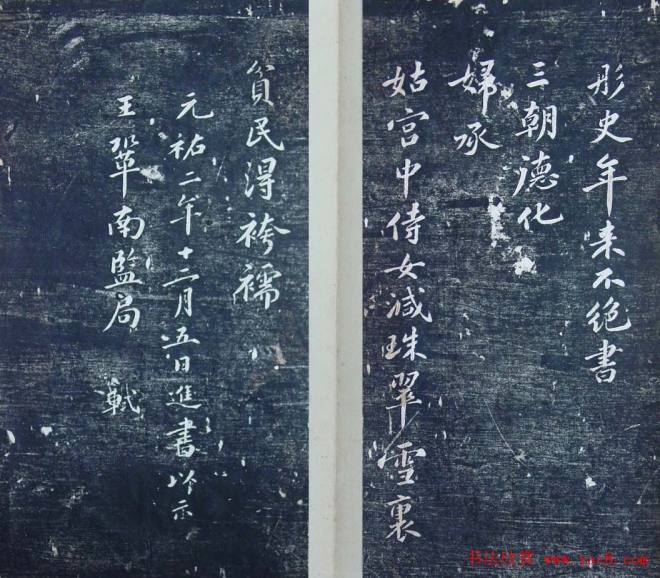 彤史年来不绝書
三朝德化
婦承
姑宫中侍女减珠翠雪裏
貧民得袴襦
元祐二年十二月五日進書以示
王鞏南監局 軾
书法欣赏 www.yac8.com